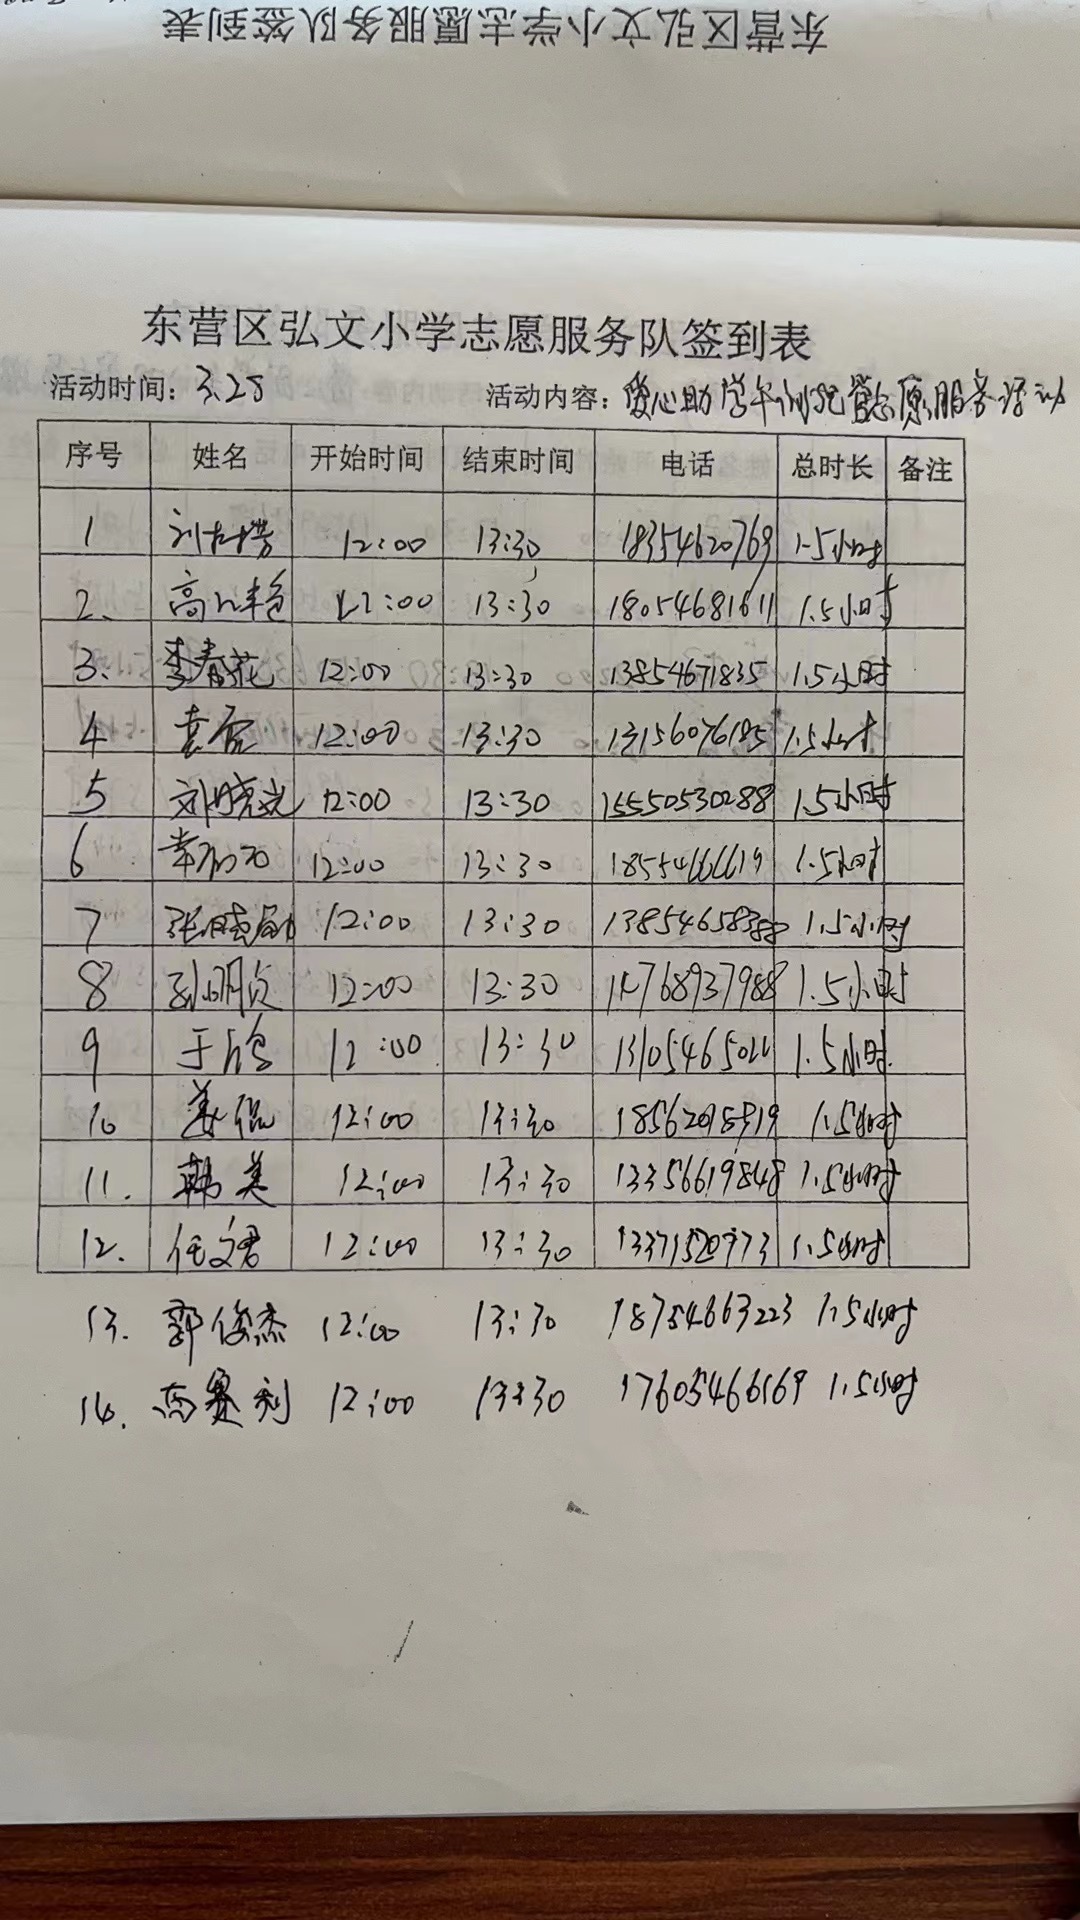 东营区弘文小学志愿服务队签到表
东营区弘文小学志愿服务队签到表
活动时间：3.25 活动内容：爱心助学午间看管志愿服务活动
序号 姓名 开始时间 结束时间 电话 总时长 备注
1 刘 12:00 13:30 18354620769 1.5小时
2. 高 12:00 13:30 18054681611 1.5小时
3. 李春花 12:00 13:30 13854671835 1.5小时
4 袁 12:00 13:30 13156076185 1.5小时
5 刘晓 12:00 13:30 15550530288 1.5小时
6 12:00 13:30 1.5小时
7 张 12:00 13:30 13854658388 1.5小时
8 孙明贞 12:00 13:30 14768937988 1.5小时
9 于 12:00 13:30 1.5小时
10 姜侃 12:00 13:30 1.5小时
11. 韩美 12:00 13:30 13356619848 1.5小时
12. 任文君 12:00 13:30 13371520973 1.5小时
13. 郭俊杰 12:00 13:30 18754663223 1.5小时
14. 高赛利 12:00 13:30 17605466169 1.5小时